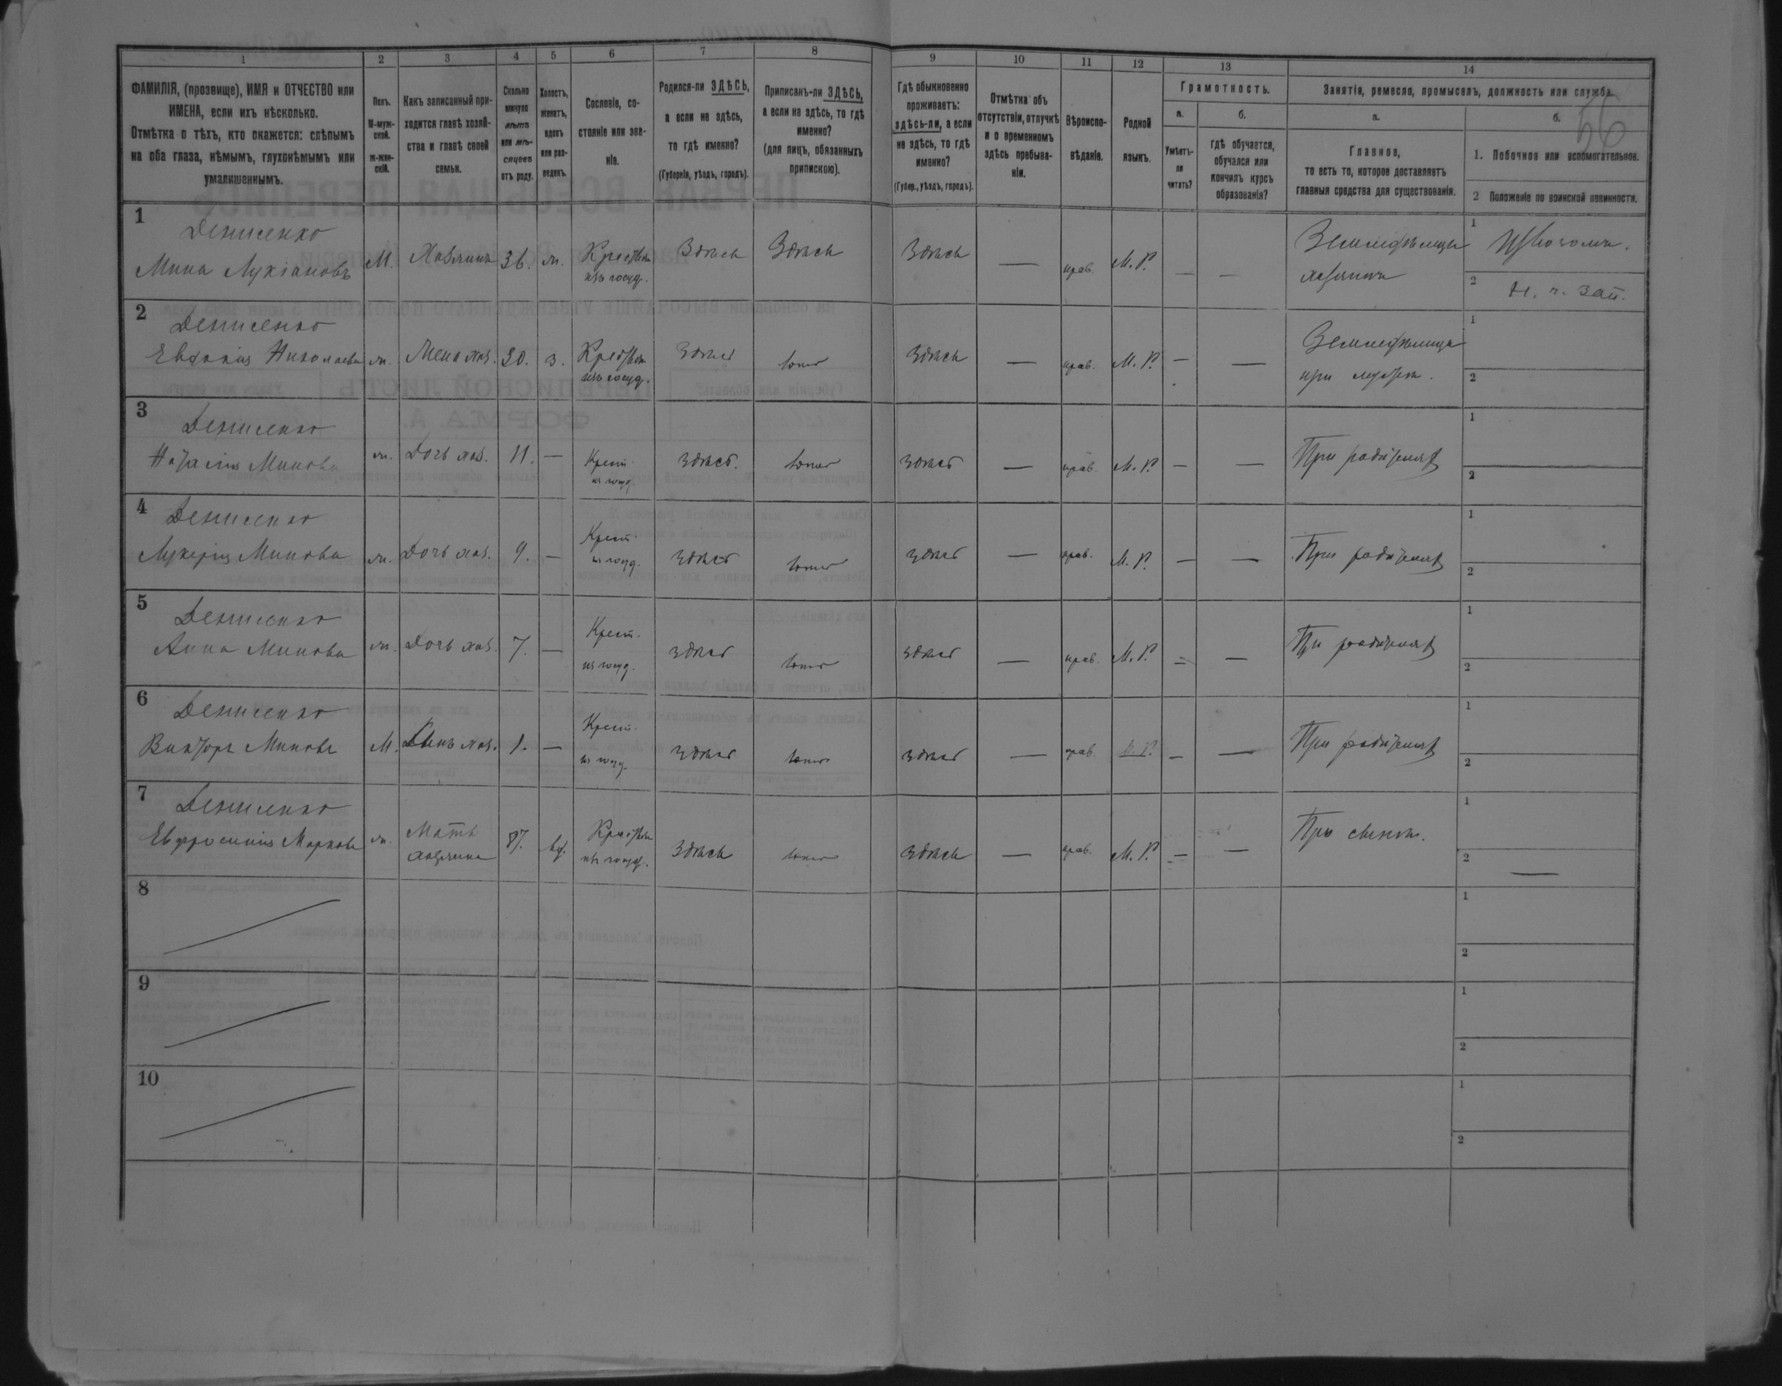 56
1
2
3
4
5
6
7
8
9
10
11
12
13
14
ФАМИЛІЯ, (прозвище), ИМЯ и ОТЧЕСТВО или
ИМЕНА, если ихъ нѣсколько.
Отмѣтка о тѣхъ, кто окажется: слѣпымъ
на оба глаза, нѣмымъ, глухонѣмымъ или
умалишеннымъ.
Полъ.
М-муж-
ской.
ж-жен-
скій.
Какъ записанный при-
ходится главѣ хозяй-
ства и главѣ своей
семьи.
Сколько
минуло
лѣтъ
или мѣ-
сяцевъ
отъ роду.
Холостъ,
женатъ,
вдовъ
или раз-
веденъ.
Сословіе, со-
стояніе или зва-
ніе.
Родился-ли ЗДѢСЬ,
а если не здѣсь,
то гдѣ именно?
(Губернія, уѣздъ, городъ).
Приписанъ-ли ЗДѢСЬ,
а если не здѣсь, то гдѣ
именно?
(для лицъ, обязанныхъ
припискою).
Гдѣ обыкновенно
проживаетъ:
здѣсь-ли, а если
не здѣсь, то гдѣ
именно?
(Губер., уѣздъ, городъ).
Отмѣтка объ
отсутствіи, отлучкѣ
и о временномъ
здѣсь пребыва-
ніи.
Вѣроиспо-
вѣданіе.
Родной
языкъ.
Грамотность.
а.
Умѣетъ-
ли
читать?
б.
гдѣ обучается,
обучался или
кончилъ курсъ
образованія?
Занятія, ремесло, промыселъ, должность или служба.
а.
Главное,
то есть то, которое доставляетъ
главныя средства для существованія.
б.
1. Побочное или вспомогательное.
2 Положеніе по воинской повинности.
1
Денисенко
Мина Лукіановъ М. Хозяинъ 36. ж. Крестьян. изъ госуд. Здѣсь Здѣсь Здѣсь — прав. М.Р. — — Земледѣлецъ хозяинъ
1 Извозомъ.
2 Н. ч. зап.
2
Денисенко
Евфимія Николаева ж. Жена хоз. 30. з. Крестьян. изъ госуд. Здѣсь тоже Здѣсь — прав. М.Р. — — Земледѣлица при мужѣ.
1
2
3
Денисенко
Наталія Минова ж. Дочь хоз. 11. — Крест. из госуд. здѣсь. тоже здѣсь — прав. М.Р. — — При родителях
1
2
4
Денисенко
Лукерія Минова ж. Дочь хоз. 9. — Крест. из госуд. здѣсь тоже здѣсь — прав. М.Р. — — При родителях
1
2
5
Денисенко
Анна Минова ж. Дочь хоз. 7. — Крест. из госуд. здѣсь тоже здѣсь — прав. М.Р. — — При родителях
1
2
6
Денисенко
Викторъ Миновъ М. Сынъ хоз. 1. — Крест. из госуд. здѣсь тоже здѣсь — прав. М.Р. — — При родителях
1
2
7
Денисенко
Евфросинія Маркова ж. Мать хозяина вд. Крестьян. изъ госуд. Здѣсь тоже Здѣсь — прав. М.Р. — — При сынѣ.
1
2 —
8
1
2
9
1
2
10
1
2